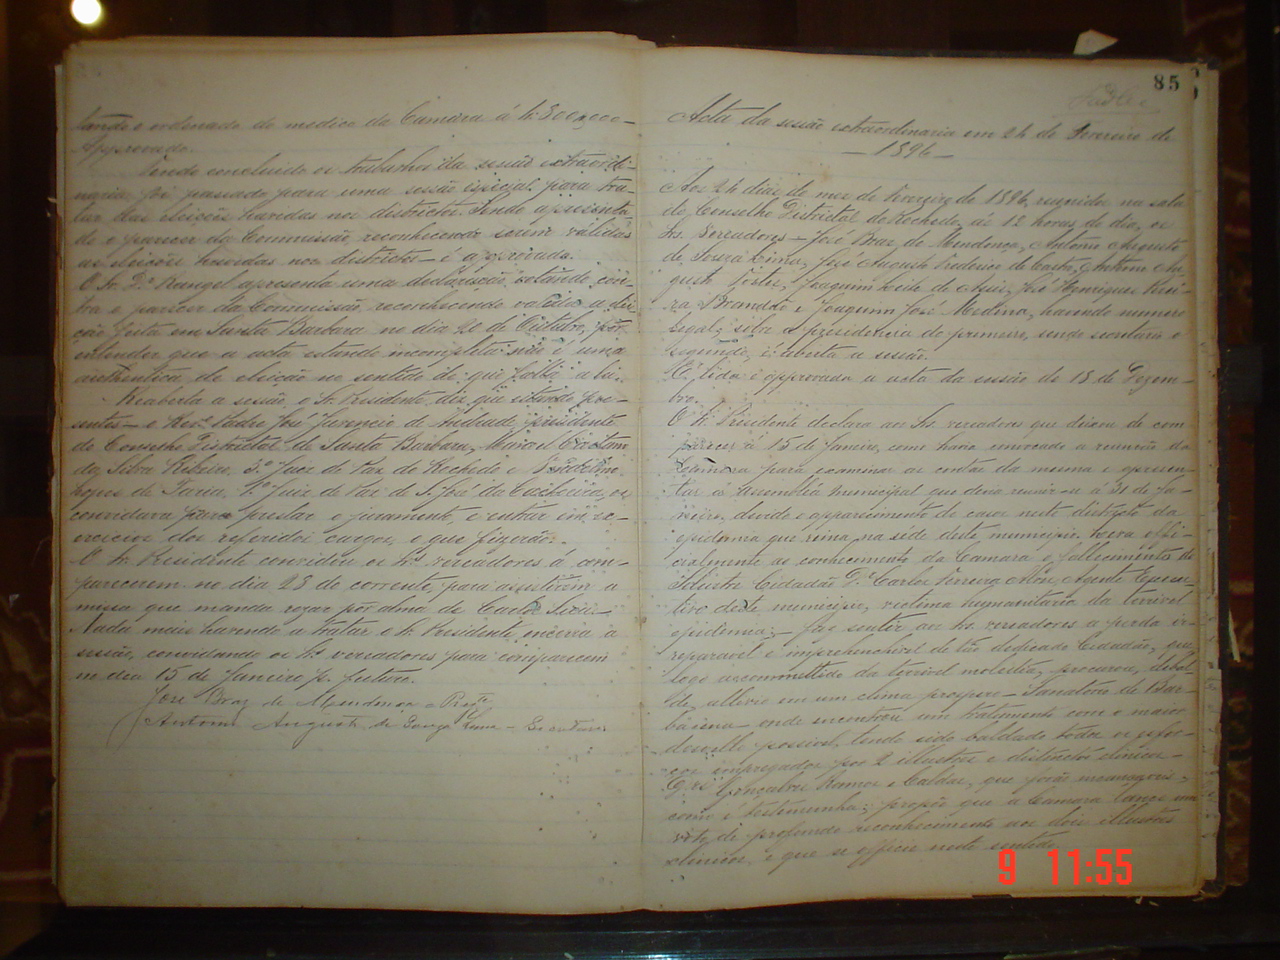 tando o ordenado do medico da Camara á rs. 800,000 —
Approvado.
Sendo concluido os trabalhos da sessão extraordi-
naria foi passado para uma sessão especial para tra-
tar das eleições havidas nos districtos. Sendo apresenta
do o parecer da Commissão, reconhecendo serem validas
as eleições havidas nos districtos — é approvada.
O Sr. Dr. Rangel apresenta uma declaração votando con-
tra o parecer da Commissão, reconhecendo valida a elei-
ção feita em Santa Barbara no dia 20 de Outubro, por
entender que a acta estando incompleta não é uma
authentica de eleição no sentido de que a lei.
Reaberta a sessão, o Sr. Presidente diz que estando pre-
sentes — o Revo. Padre José Juvencio de Andrade, presidente
do Conselho Districtal de Santa Barbara, Manoel
da Silva Ribeiro, 3º Juiz de Paz de Rochedo e
Lopes de Faria, 1º Juiz de Paz de S. José da Cachoeira, os
convidava para prestar o juramento, e entrar em ex-
ercicios dos referidos cargos, o que fizerão.
O Sr. Presidente convidou os Srs. vereadores á com-
parecerem no dia 28 do corrente, para assistirem a
missa que manda rezar por alma de
Nada mais havendo a tratar o Sr. Presidente encerra a
sessão, convidando os Srs. vereadores para comparecerem
no dia 15 de Janeiro p. futuro.
José Braz de Mendonça — Preste.
Antonio Augusto de Souza Lima — Secretario
85
Acta da sessão extraordinaria em 24 de Fevereiro de
— 1896 —
Aos 24 dias do mez de Fevereiro de 1896, reunidos na sala
do Conselho Districtal de Rochedo, ás 12 horas do dia, os
Srs. Vereadores — José Braz de Mendonça, Antonio Augusto
de Souza Lima, José Augusto Frederico de Castro, Antonio Au-
gusto Joaquim Leite de Assis, José Henriques Perei-
ra Brandão e Joaquim José Medina, havendo numero
legal; sob a presidencia do primeiro, sendo secretario o
segundo, é aberta a sessão.
É lida e approvada a acta da sessão de 18 de Dezem-
bro.
O Sr. Presidente declara aos Srs. vereadores que deixou de com
parecer á 15 de Janeiro, como havia convocado a reunião da
Camara para examinar as contas da mesma e apresen-
tar á Assembléa Municipal que devia reunir-se á 31 de Ja-
neiro, devido o apparecimento de casos neste districto da
epidemia que reina na séde deste municipio. Leva offi-
cialmente ao conhecimento da Camara o fallecimento do
illustre Cidadão Dr. Carlos Ferreira Alves, Agente Execu-
tivo deste municipio, victima humanitaria da terrivel
epidemia; — faz sentir aos Srs. vereadores a perda ir-
reparavel e imprehenchivel de tão dedicado Cidadão, que,
logo accommettido da terrivel molestia, procurou,
de allivio em um clima prospero — Sanatorio de Bar-
bacena — onde encontrou um tratamento com o maior
desvello possivel, tendo sido baldado todos os esfor-
ços empregados por 2 illustres e distinctos clinicos —
Gonçalves Ramos e Caldas, que forão
como é testemunha; — propõe que a Camara lance um
voto de profundo reconhecimento aos dois illustres
clinicos, e que se officie neste sentido.
9 11:55